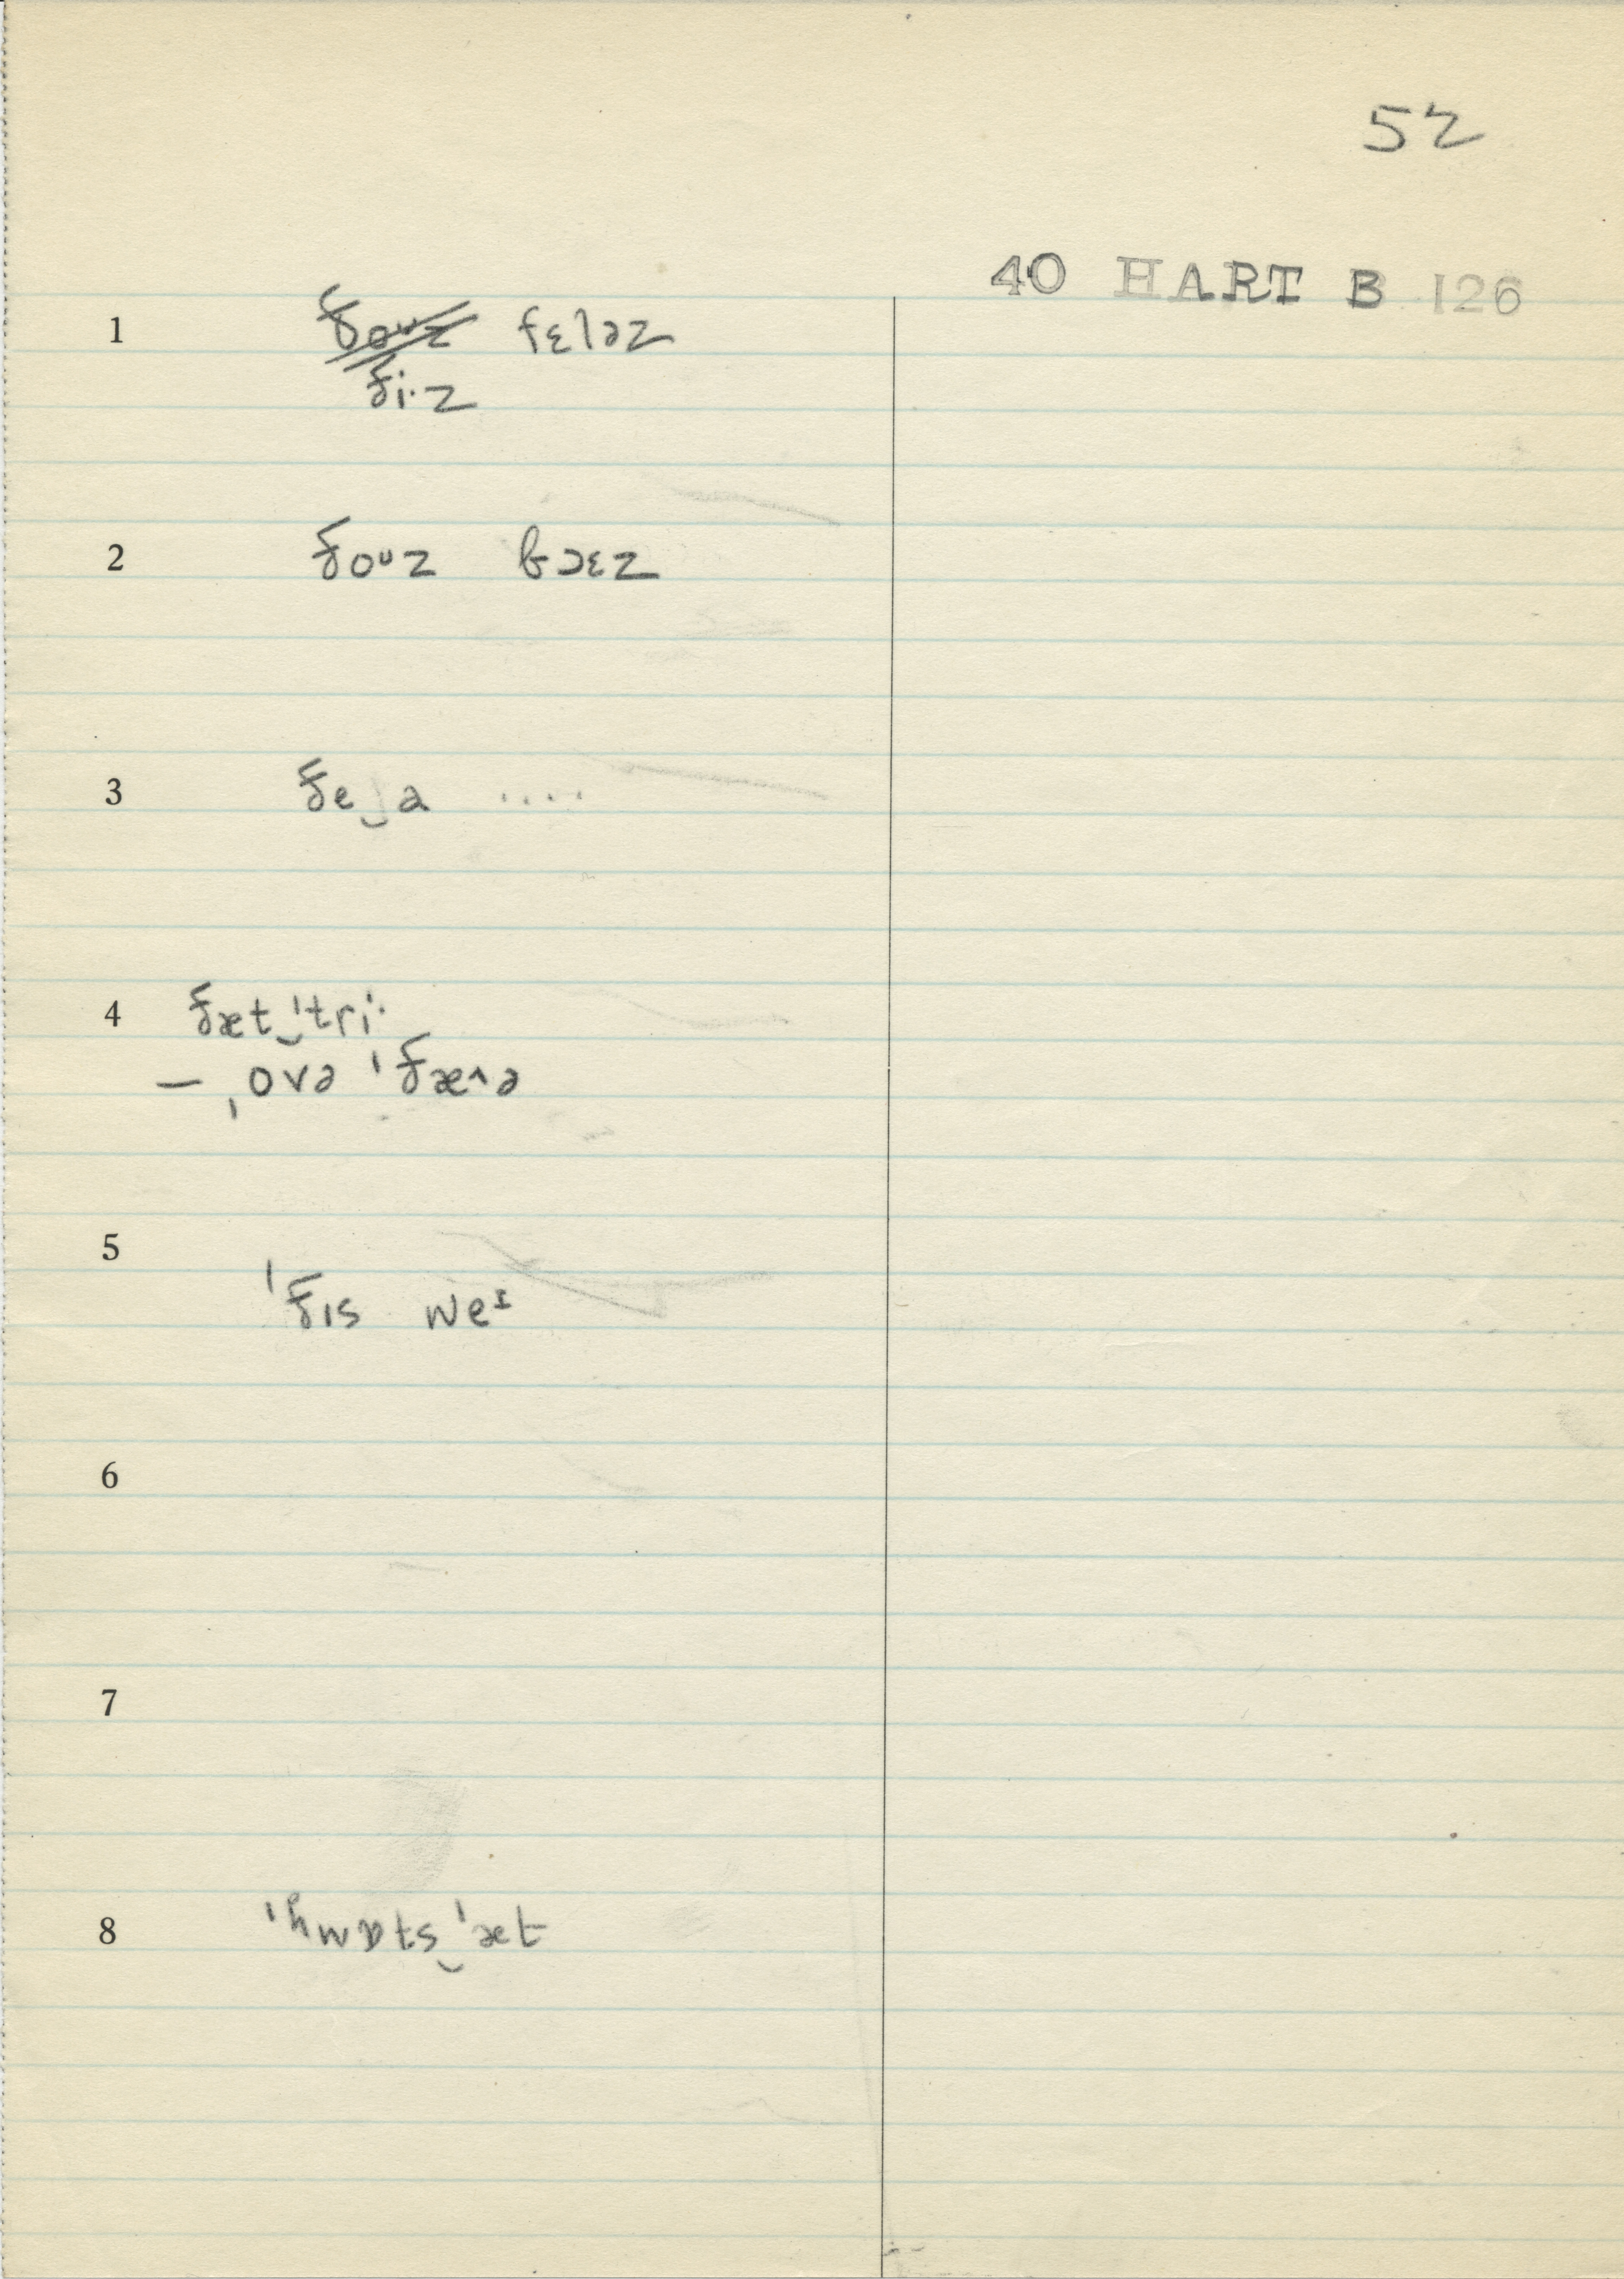 52
40 HART B 126
1 ð̶o̶ᴜ̶z̶ fɛləz
ði·z
2 ðoᴜz bɔɛz
3 ðe‿a ....
4 ðæt‿ˈtri·
— ˌovə ˈðæ^ə
5
ˈðɪs weᶦ
6
7
8 ˈhwɒts‿ˈæt